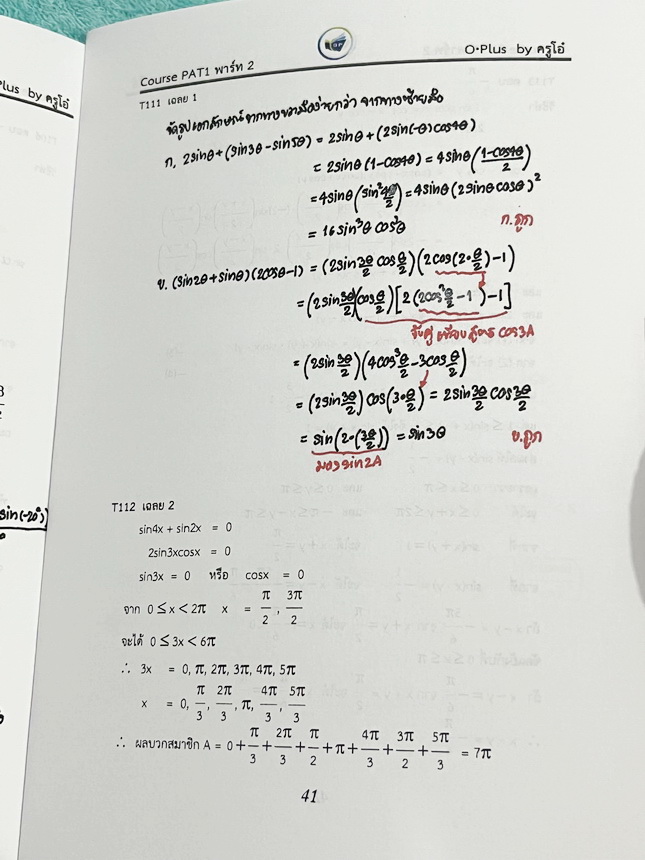 Plus by ครูโอ๋
Course PAT1 พาร์ท 2
OP
O•Plus by ครูโอ๋
T111 เฉลย 1
จัดรูปเอกลักษณ์จากทางขวามือง่ายกว่า จากทางซ้ายมือ
ก. 2sinθ+(sin3θ-sin5θ) = 2sinθ+(2sin(-θ)cos4θ)
= 2sinθ(1-cos4θ) = 4sinθ((1-cos4θ)/2)
= 4sinθ(sin²4θ/2) = 4sinθ(2sinθcosθ)²
= 16sin³θcos²θ
ก.ถูก
ข. (sin2θ+sinθ)(2cosθ-1) = (2sin3θ/2 cosθ/2)(2cos(2•θ/2)-1)
= (2sin3θ/2)(cosθ/2)[2(2cos²θ/2-1)-1]
จับคู่ เตรียมสูตร cos3A
= (2sin3θ/2)(4cos³θ/2-3cosθ/2)
= (2sin3θ/2)cos(3•θ/2) = 2sin3θ/2 cos3θ/2
= sin(2•(3θ/2)) = sin3θ
ข.ถูก
มอง sin2A
sin(-20°)
T112 เฉลย 2
sin4x + sin2x = 0
2sin3xcosx = 0
sin3x = 0 หรือ cosx = 0
จาก 0 ≤ x < 2π x = π/2, 3π/2
จะได้ 0 ≤ 3x < 6π
∴ 3x = 0, π, 2π, 3π, 4π, 5π
x = 0, π/3, 2π/3, π, 4π/3, 5π/3
∴ ผลบวกสมาชิก A = 0 + π/3 + 2π/3 + π/2 + π + 4π/3 + 3π/2 + 5π/3 = 7π
41